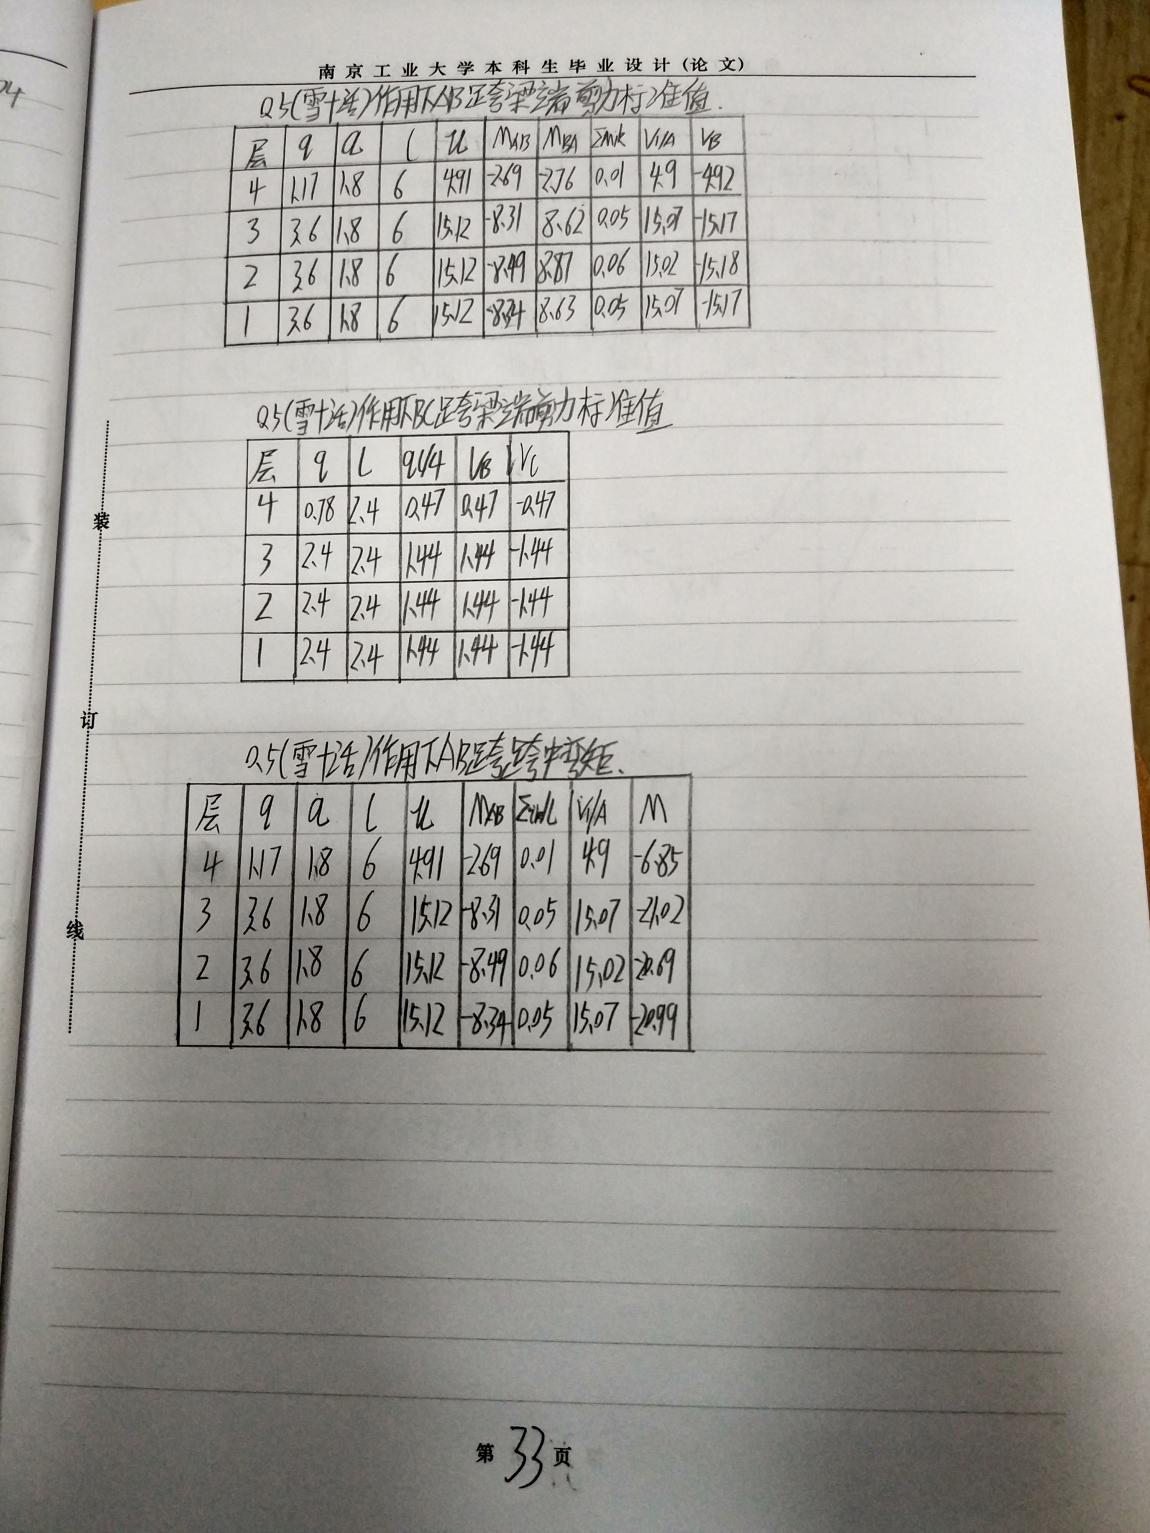 南京工业大学本科生毕业设计(论文)
0.5(雪+活)作用下AB跨梁端剪力标准值.
层 q a l u MAB MBA ΣMik V1/A VB
4 1.17 1.8 6 4.91 -2.69 -2.76 0.01 4.9 -4.92
3 3.6 1.8 6 15.12 -8.31 8.62 0.05 15.07 -15.17
2 3.6 1.8 6 15.12 -8.49 8.87 0.06 15.02 -15.18
1 3.6 1.8 6 15.12 -8.34 8.63 0.05 15.07 -15.17
0.5(雪+活)作用下BC跨梁端剪力标准值
层 q l ql/4 VB VC
4 0.78 2.4 0.47 0.47 -0.47
3 2.4 2.4 1.44 1.44 -1.44
2 2.4 2.4 1.44 1.44 -1.44
1 2.4 2.4 1.44 1.44 -1.44
0.5(雪+活)作用下AB跨跨中弯矩.
层 q a l u MAB V1/A M
4 1.17 1.8 6 4.91 -2.69 0.01 4.9 -6.85
3 3.6 1.8 6 15.12 -8.31 0.05 15.07 -21.02
2 3.6 1.8 6 15.12 -8.49 0.06 15.02 -20.69
1 3.6 1.8 6 15.12 -8.34 0.05 15.07 -20.99
装
订
线
第33页